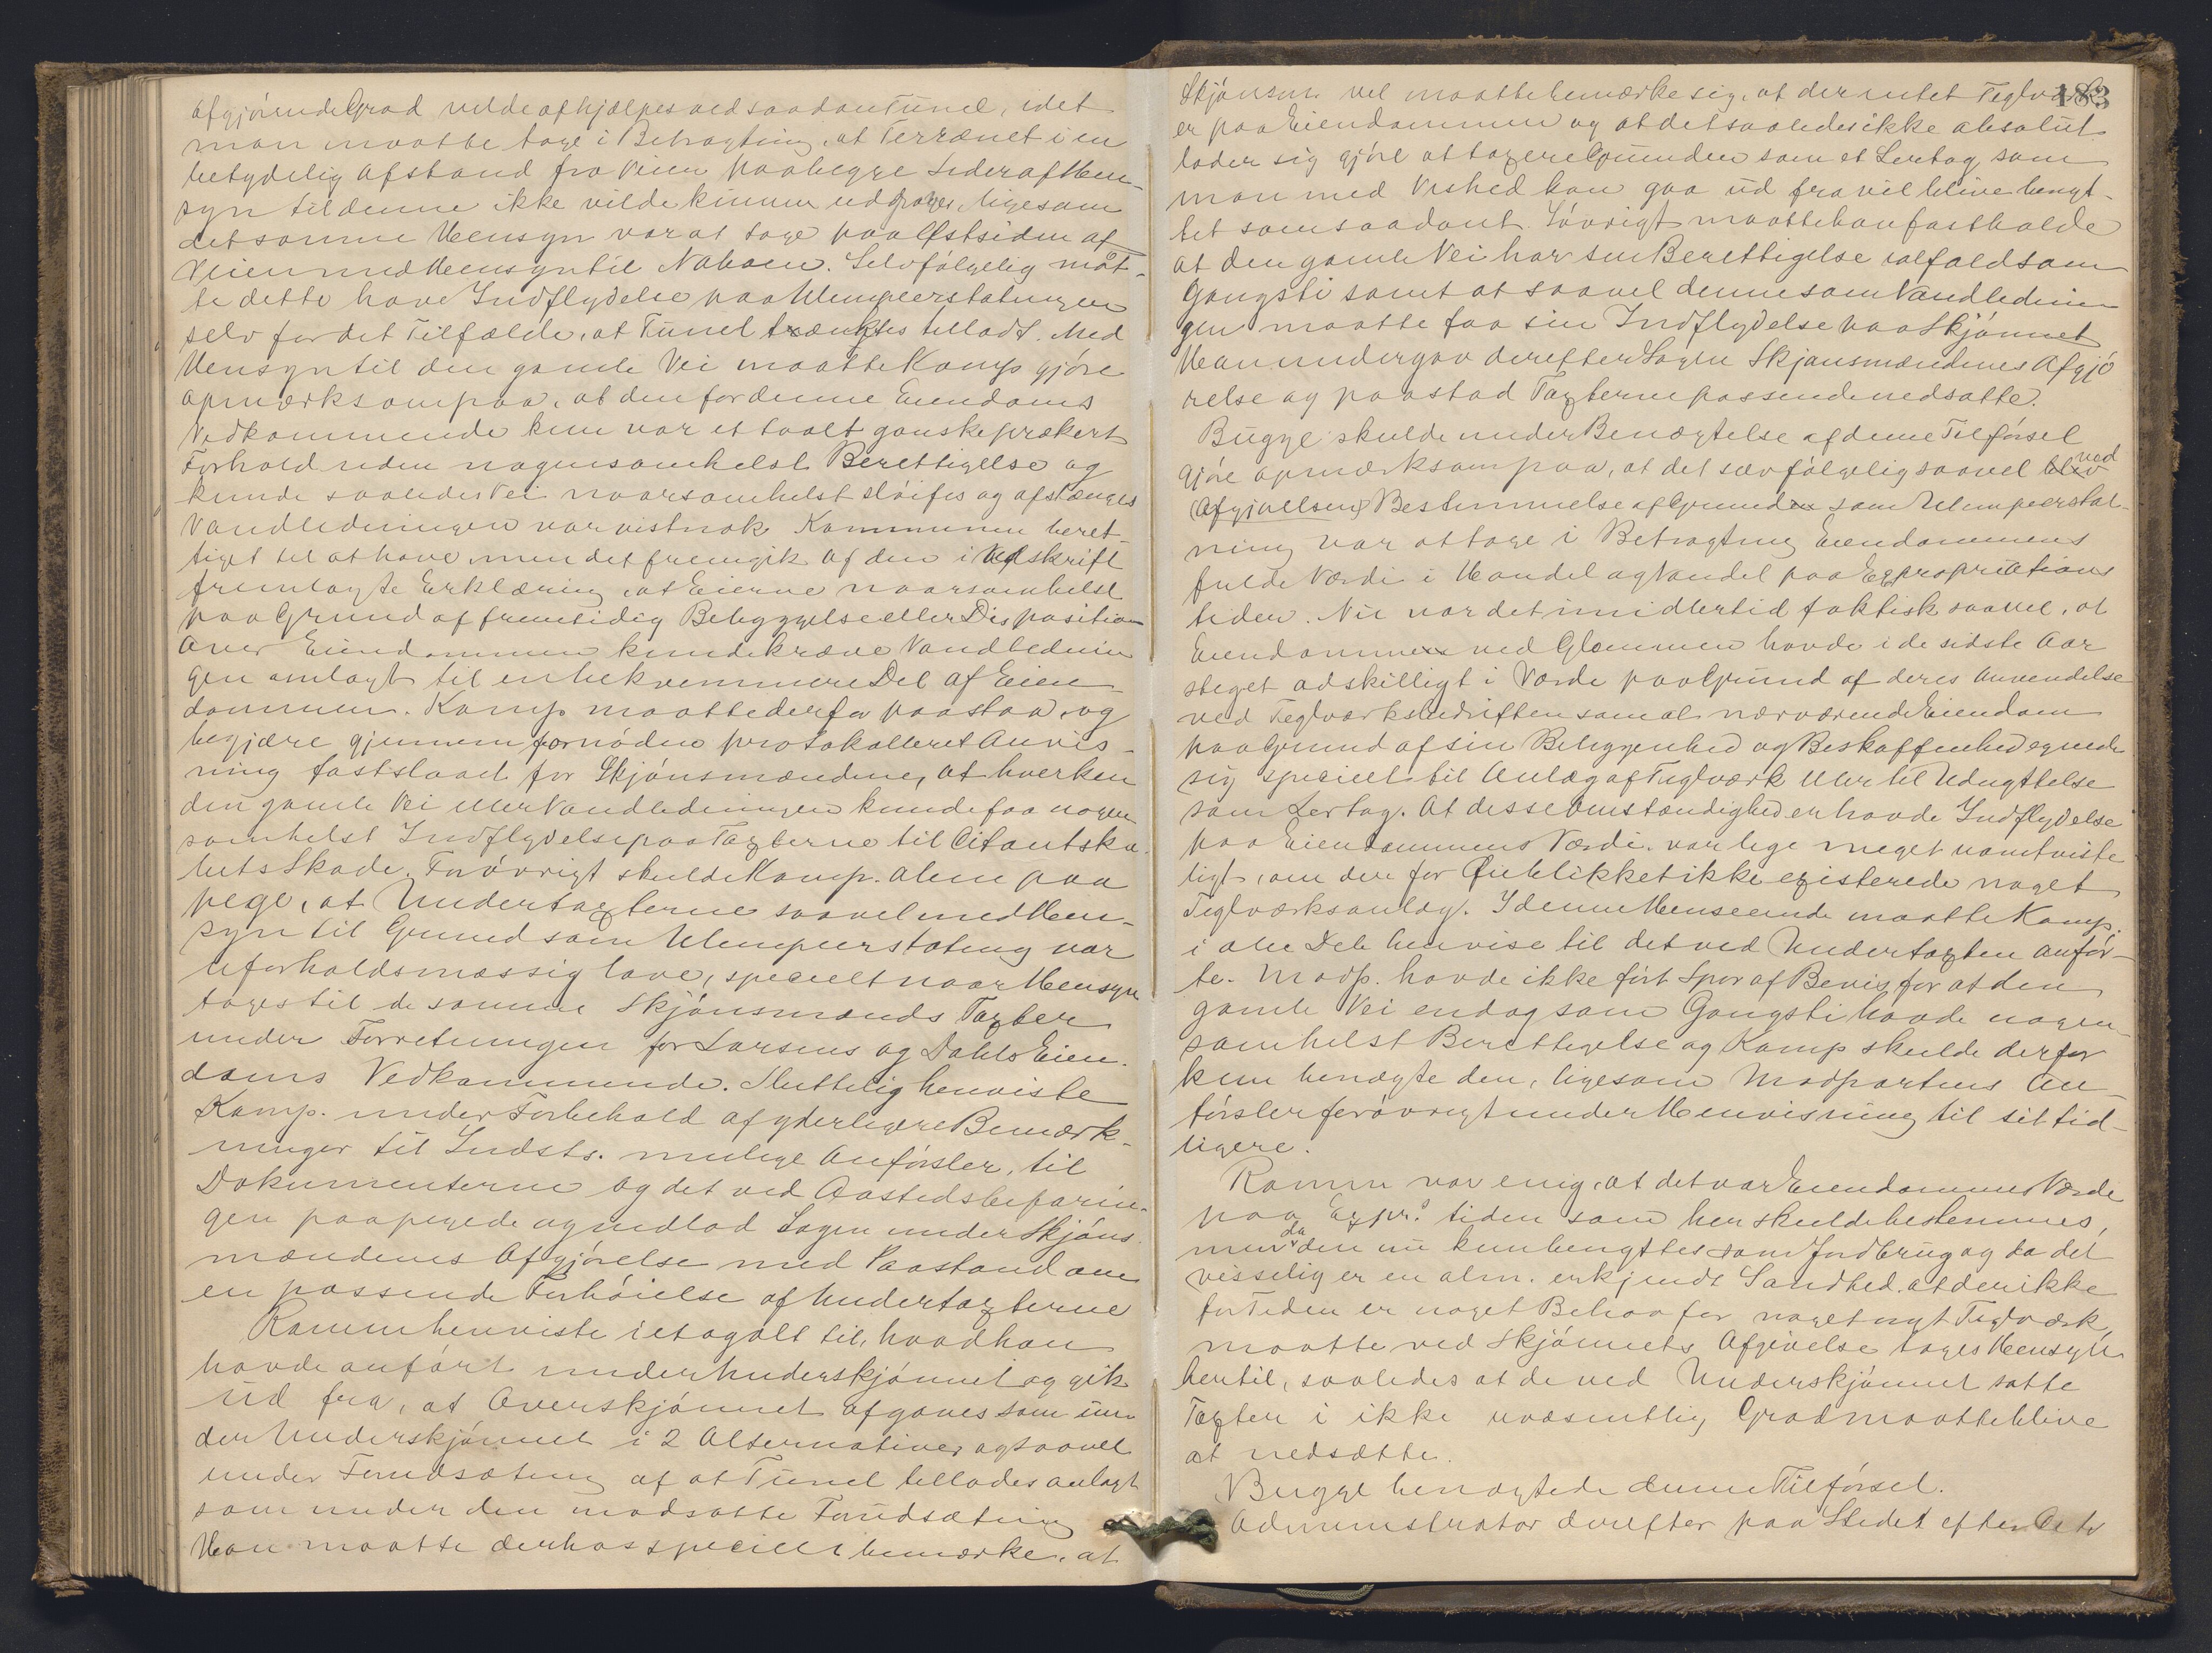 afgjørende Grad vilde afhjælpes ved saadan Tunel, idet
man maatte tage i Betragtning, at Terrænet i en
betydelig Afstand fra Veien paa begge Sider af Hen-
syn til denne ikke vilde kunne udgraves, ligesom
det samme Hensyn var at tage paa Østsiden af
Veien med Hensyn til Naboen. Selvfølgelig måt-
te dette have Indflydelse paa Ulempeerstatningen
selv for det Tilfælde, at Tunel tænktes tilladt. Med
Hensyn til den gamle Vei maatte Kamp gjøre
opmærksom paa, at den for denne Eiendoms
Vedkommende kun var et taalt ganske prekært
Forhold uden nogensomhelst Berettigelse og
kunde saaledes Vei naarsomhelst sløifes og afstænges
Vandledningen var vistnok Kommunen beret-
tiget til at have, men det fremgik af den i Udskrift
fremlagte Erklæring, at Eierne naarsomhelst
paa Grund af fremtidig Bebyggelse eller Disposition
over Eiendommen kunde kræve Vandlednin
gen omlagt til en bekvemmere Del af Eien-
dommen. Kamp maatte derfor paastaa, og
begjære gjennem fornøden protokolleret Anvis-
ning fastslaaet for Skjønsmændene, at hverken
den gamle Vei eller Vandledningen kunde faa nogen
somhelst Indflydelse paa Taxterne til Citantska-
bets Skade. Forøvrigt skulde Kamp. alene paa
pege, at Undertaxterne saavel med Hen-
syn til Grund som Ulempeerstatning var
uforholdsmæssig lave, specielt naar Hensyn
toges til de samme Skjønsmænds Taxter
under Forretningen for Larsens og Dahls Eien-
doms Vedkommende. Sluttelig henviste
Kamp. under Forbehold af yderligere Bemærk-
ninger til Indsts. mulige Anførsler, til
Dokumenterne og det ved Aastedsbefarin-
gen paapegede og indlod Sagen under Skjøns
mændenes Afgjørelse med Paastand om
en passende Forhøielse af Undertaxterne
Ramm henviste i et og alt til, hvad han
havde anført under Underskjønnet og gik
ud fra, at Overskjønnet afgaves som un-
der Underskjønnet i 2 Alternativer og saavel
under Forudsætning af at Tunel tillades anlagt
som under den modsatte Forudsætning
Han maatte derhos specielt bemærke, at
183
Skjønsm. vel maatte bemærke sig, at der intet Teglværk
er paa Eiendommen og at det saaledes ikke absolut
lader sig gjøre at taxere Grunden som et Lertag, som
man med Vished kan gaa ud fra vil blive benyt-
tet som saadant. Iøvrigt maatte han fastholde
at den gamle Vei har sin Berettigelse ialfald som
Gangsti samt at saavel denne som Vandlednin
gen maatte faa sin Indflydelse paa Skjønnet
Han undergav derefter Sagen Skjønsmændenes Afgjø
relse og paastod Taxterne passende nedsatte.
Bugge skulde under Benægtelse af denne Tilførsel
gjøre opmærksom paa, at det selvfølgelig saavel ved
(Afgjørelsen) Bestemmelse af Grund som Ulempeerstat-
ning var at tage i Betragtning Eiendommens
fulde Værdi i Handel og Vandel paa Expropriations
tiden. Nu var det imidlertid faktisk saavel, at
Eiendomme ved Glommen havde i de sidste Aar
steget adskilligt i Værdi paa Grund af deres Anvendelse
ved Teglværksbedriften som at nærværende Eiendom
paa Grund af sin Beliggenhed og Beskaffenhed egnede
sig specielt til Anlæg af Teglværk eller til Udnyttelse
som Lertag. At disse Omstændigheder havde Indflydelse
paa Eiendommens Værdi, var lige meget uomtviste
ligt, om der for Øieblikket ikke existerede noget
Teglværksanlæg. I denne Henseende maatte Kamp.
i alle Dele henvise til det ved Undertaxten anfør-
te. Modp. havde ikke ført Spor af Bevis for at den
gamle Vei endog som Gangsti havde nogen-
somhelst Berettigelse og Kamp skulde derfor
kun benægte den, ligesom Modpartens An-
førsler forøvrigt under Henvisning til sit tid-
ligere.
Ramm var enig, at det var Eiendommens Værdi
paa Expr.s tiden som her skulde bestemmes,
men da den nu kun benyttes som Jordbrug og da det
visselig er en alm. erkjendt Sandhed, at der ikke
for Tiden er noget Behov for noget nyt Teglværk,
maatte ved Skjønnets Afgivelse tages Hensyn
hertil, saaledes at de ved Underskjønnet satte
Taxter i ikke uvæsentlig Grad maatte blive
at nedsætte.
Bugge benægtede denne Tilførsel.
Administrator derefter paa Stedet efter